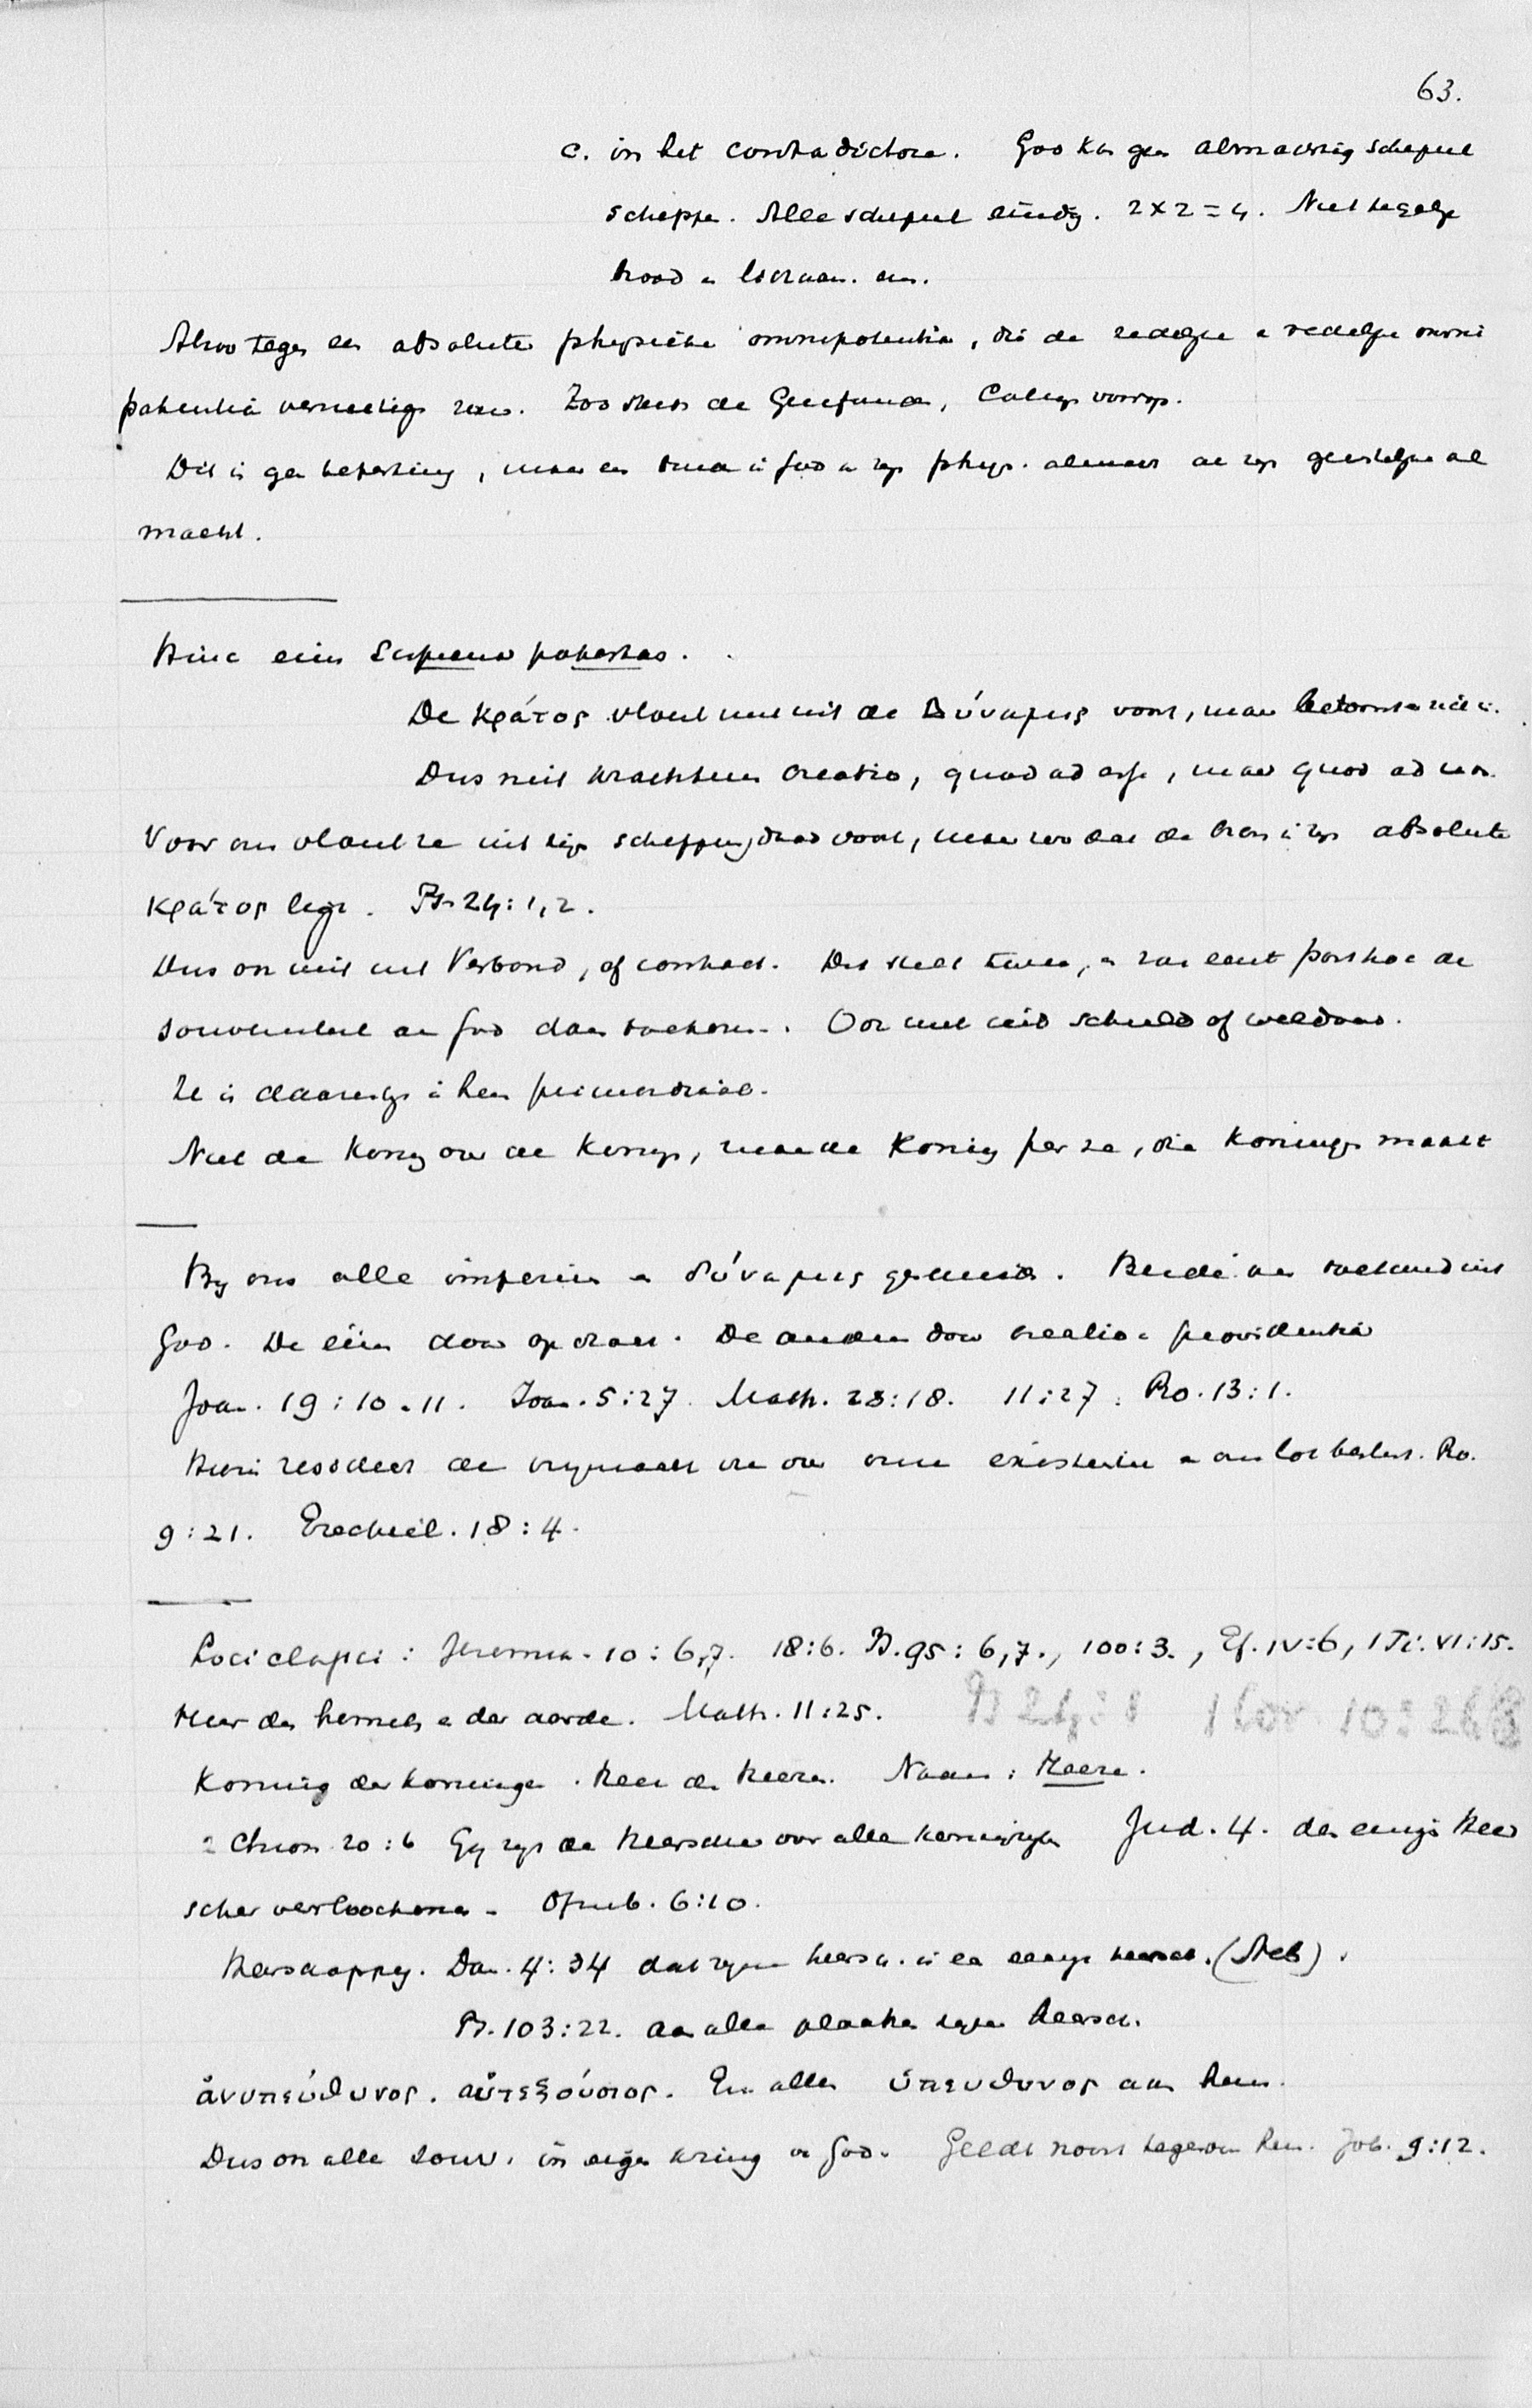 63.
c. in het contradictore. God kan geen almachtig schepsel
scheppen. Alle schepsel eindig. 2 x 2 = 4. Niet tegelijk
brood en
Alzoo tegen een absolute physische omnipotentia, die de zedelijke en redelijke omni
potentia vernietigen zou. Zoo steeds de Gereform., Calvijn voorop.
Dit is geen beperking, maar een in God en zijn phys. almacht aan zijn geestelijke al
macht.
Hinc eius Suprema potestas.
De κράτος vloeit niet uit de δύναμις voort, maar
Dus niet krachtens Creatio, quoad ad esse, maar quod ad nos.
Voor ons vloeit ze uit zijn scheppingsdaad voort, maar zoo dat de bron in zijn absolute
κράτος ligt. Ps. 24:1,2.
Dus ook niet uit Verbond, of contract. Dit stelt twee, en zou eerst post hoc de
souvereiniteit aan God doen toekomen. Ook niet uit schuld of weldaad.
Ze is daarentegen in hem primordiaal.
Niet de Koning over de Koningen, maar de Koning per se, die Koningen maakt
By ons alle imperium en δύναμις gedeeld. Beide ons toekomend uit
God. De één door opdracht. De andere door creatio en providentia
Joan. 19:10.11. Joan. 5:27. Matth. 28:18. 11:27. Ro. 13:1.
Hierin resideert de vrijmacht om over onze existentie en ons lot beslist. Ro.
9:21. Ezechiël. 18:4.
Loci classici: Jeremia. 10:6,7. 18:6. Ps. 95:6,7., 100:3., Ef. IV:6, 1 Ti. VI:15.
Heer des hemels en der aarde. Matth. 11:25. Ps 24:1 1 Cor. 10:26
Koning der koningen. Heer der Heeren. Naam: Heere.
2 Chron. 20:6 Gij zijt de Heerscher over alle koninkrijken Jud. 4. den eenigen Heer
scher verloochenen. Openb. 6:10.
Heerschappij. Dan. 4:34 dat zijne heersch. is een eeuwige heersch. (Heb).
Ps. 103:22. Aan alle plaatsen zijner heersch.
ἀνυπεύθυνος. αὐτεξούσιος. En alles ὑπεύθυνος aan hem.
Dus ook alle souv. in eigen kring van God. Geldt nooit tegenover hem. Job. 9:12.